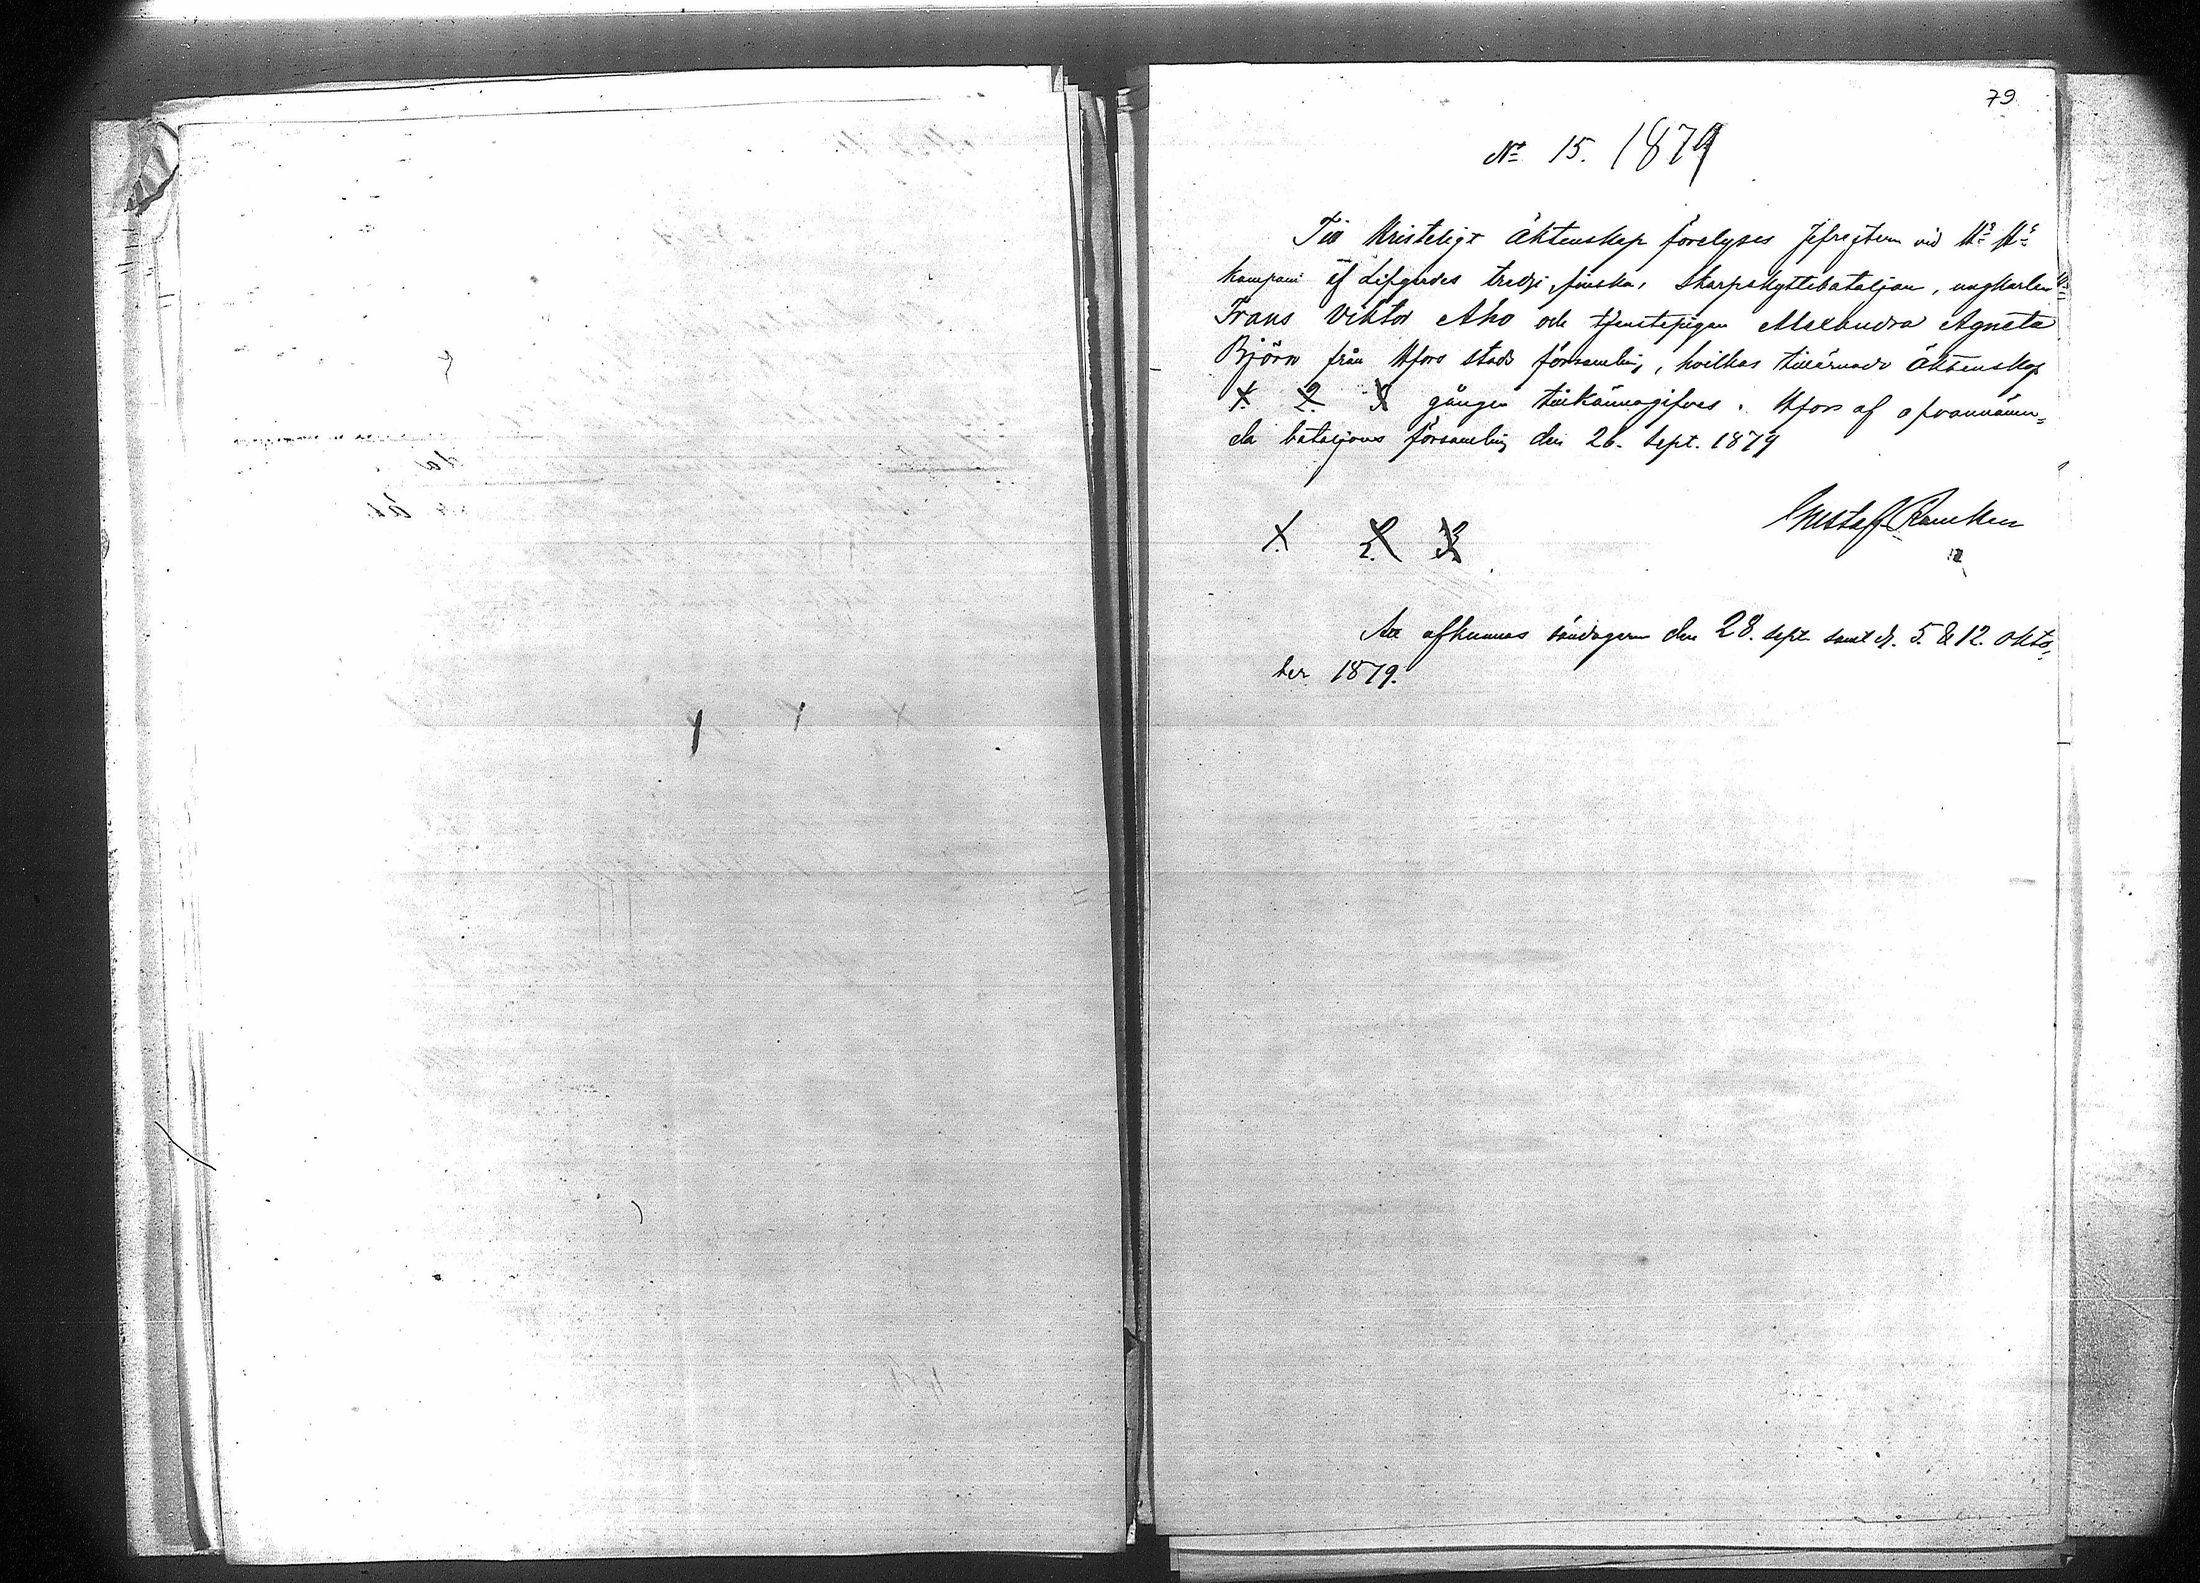 79
№ 15. 1879
Till Kristeligt äktenskap förelyses Jefrejtern vid H:s M:s
kompani af Lifgardes tredje, finska, Skarpskyttebataljon, ungkarlen
Frans Viktor Aho och tjenstepigan Alexandra Agneta
Björn från Hfors stads församling, hvilkas tillärnade äktenskap
1. 2. 3 gången tillkännagifves. Hfors af ofvannämn-
da bataljons församling den 26. Sept. 1879
Gustaf Rancken
1. 2. 3.
Att afkunnas söndagarna den 28. sept. samt d. 5. & 12. okto-
ber 1879.